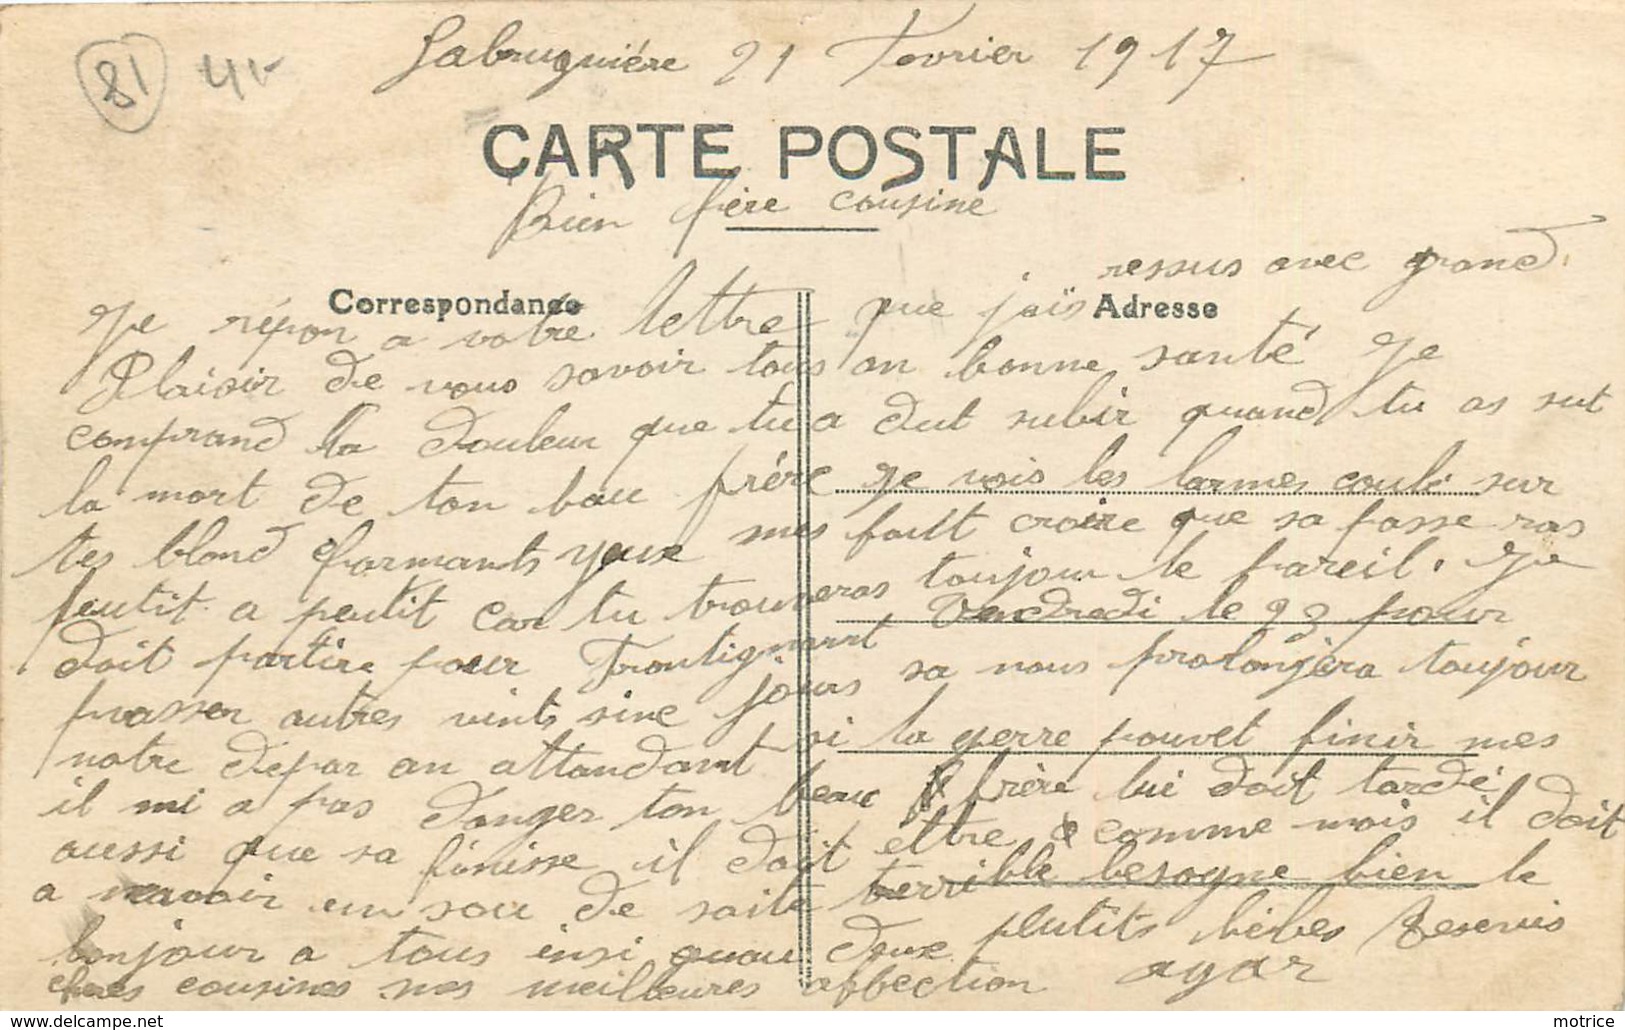 81 41-
Labruguière 21 Fevrier 1917
CARTE POSTALE
Bien chère cousine
Correspondance Adresse
Je répon a votre lettre que jaïs ressus avec grand
Plaisir de vous savoir tous an bonne santé Je
comprand la douleur que tu a dut subir quand tu as sut
la mort de ton bau frére Je vois les larmes coulé sur
tes blond charmants yeux mes fait croire que sa passe ras
peutit a peutit car tu trouveras toujour le pareil. Je
doit partire pour Frontignant Vendredi le 23 pour
passer autres vints sinc jours sa nous prolonjera toujour
notre depar an attandant si la gerre pouvet finir mes
il mi a pas danger ton beau frère lui doit tardé
aussi que sa finisse il doit ettre comme mois il doit
a navoir un sou de saite terrible besogne bien le
bonjour a tous insi quau deux peutits bébes Resevis
chères cousines mes meilleures affection ayar
motrice